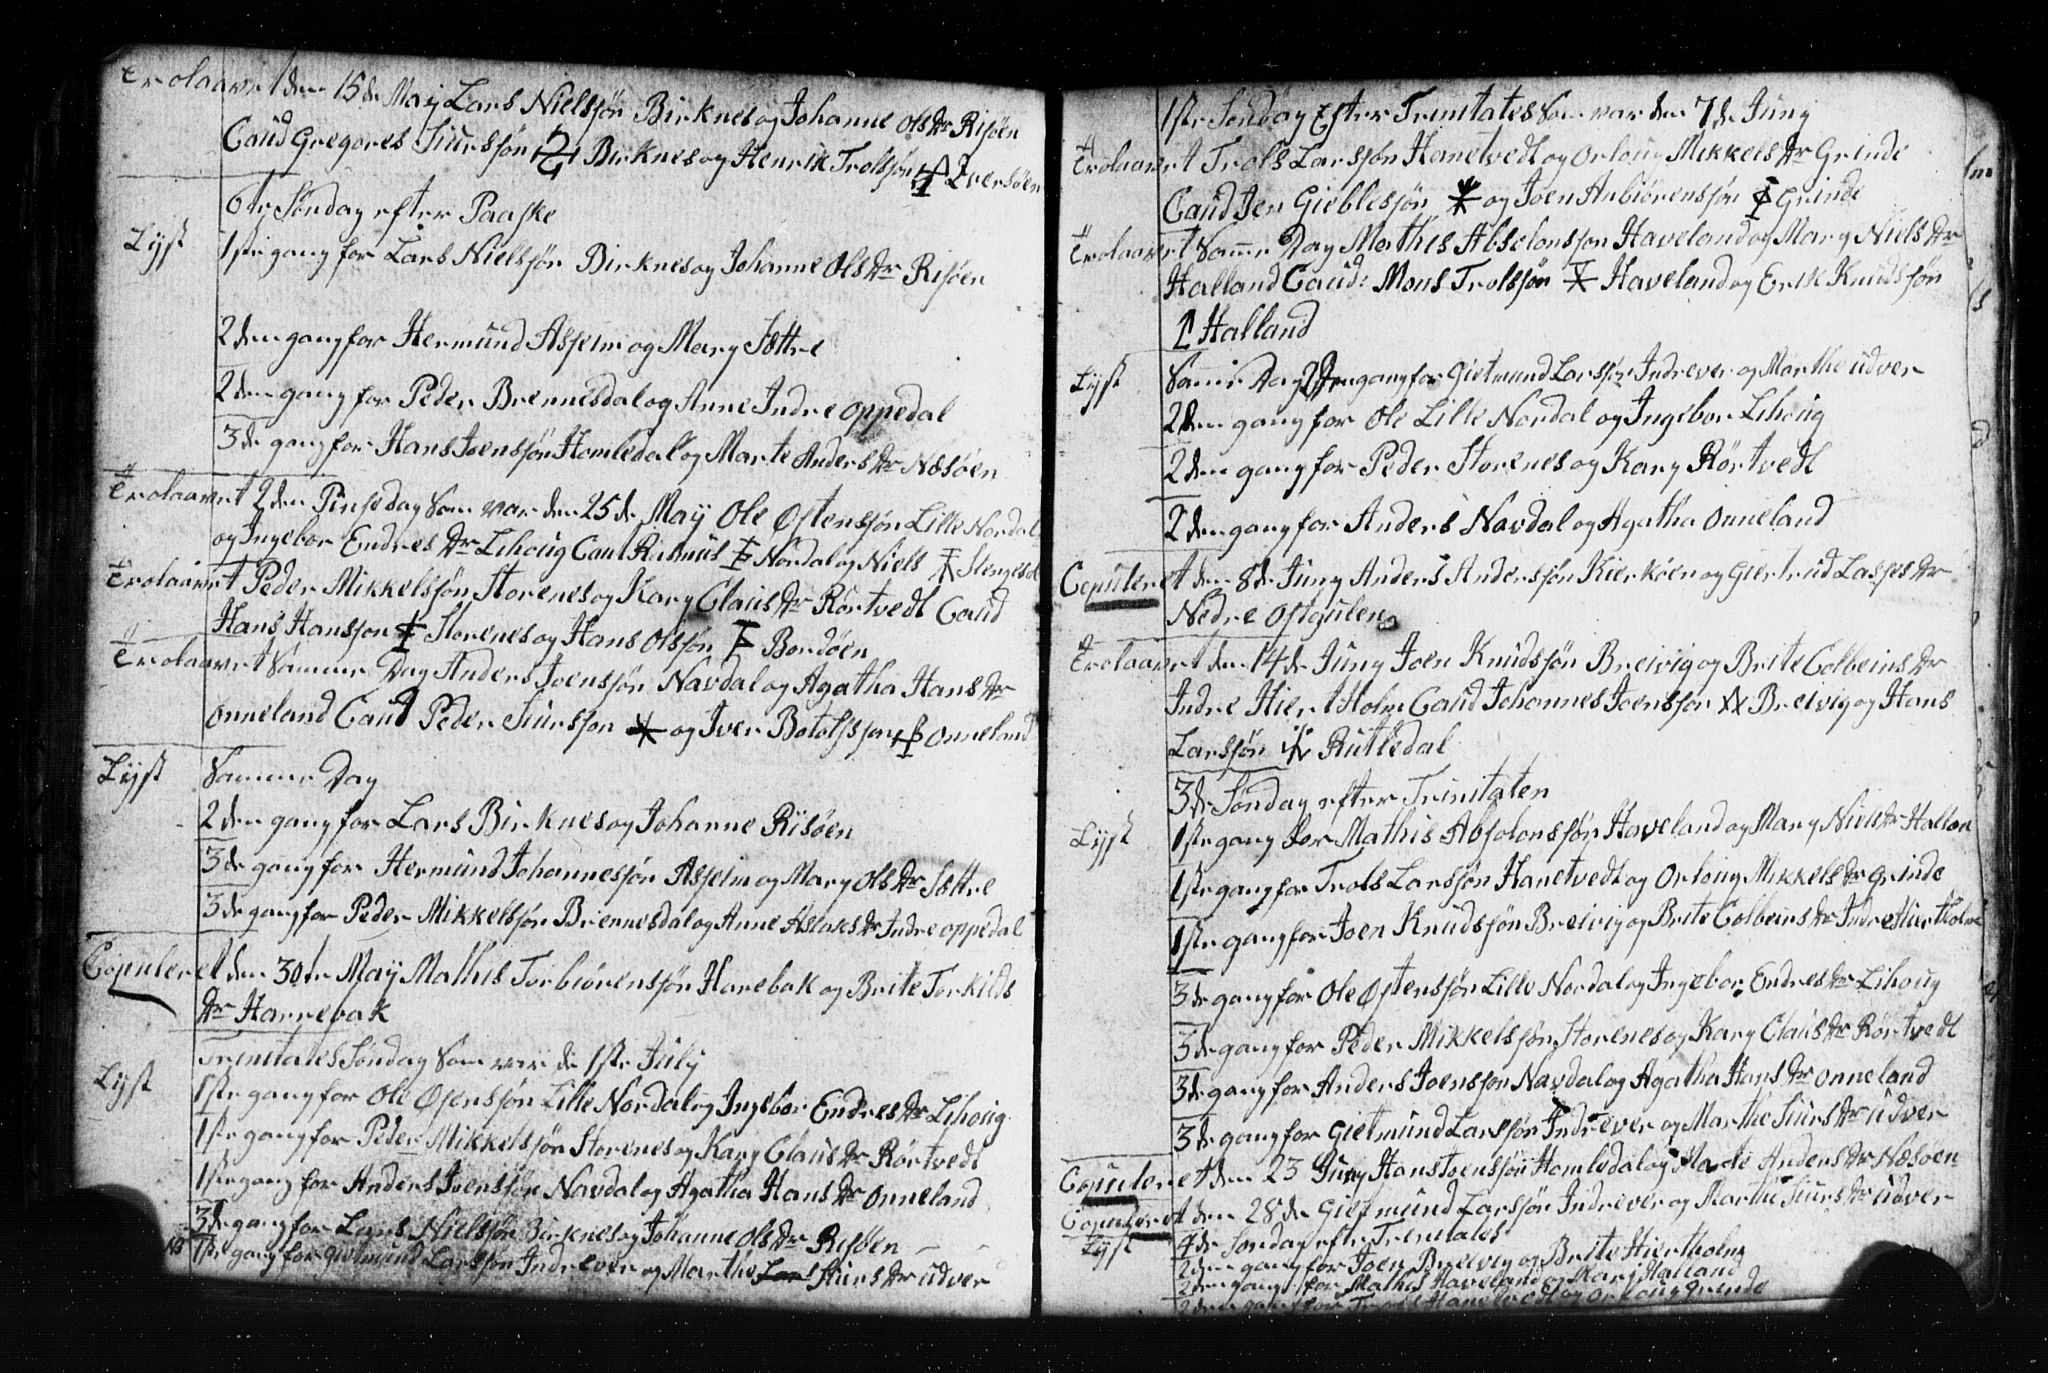 Trolaavet den 15de Maÿ Lars Nielssön Birknes og Johanne Olsdr Risöen
Caud Gregores Siurssön Birknes og Henrik Trolssön Iversöen
6te Söndag efter Paaske
Lyst 1ste gang for Lars Nielssön Birknes og Johanne Olsdr Risöen
2den gang for Hermund Asseim og Mary Sættre
2den gang for Peder Brennesdal og Anne Indre Oppedal
3de gang for Hans Joenssön Homledal og Marte Andersdr Næsöen
Trolaavet 2den Pinsedag Som var den 25de Maÿ Ole Östenssön Lille Nordal
og Ingebor Endresdr Lihoug Caut Rasmus Nordal og Niels
Trolaavet Peder Mikkelssön Storenes og Kary Clausdr Rörtvedt Caud
Hans Hansson Storenes og Hans Olssön Bordöen
Trolaavet Samme Dag Anders Joenssön Navdal og Agatha Hansdr
Onneland Caud Peder Siursson og Iver Botolfsson Onneland
Lyst Samme Dag
2den gang for Lars Birknes og Johanne Risöen
3de gang for Hermund Johannessön Asseim og Mary Olsdr Sættre
3de gang for Peder Mikkelssön Brennesdal og Anne Aslaksdr Indre Oppedal
Copuleret den 30te Maÿ Mathis Torbiörenssön Harebak og Brite Torkilds
dr Harrebak
Trinitates Söndag Som var de 1ste July
Lyst 1ste gang for Ole Öjensson Lille Nordal og Ingebor Endresdr Lihoug
1ste gang for Peder Mikkelssön Storenes og Kary Clausdr Rörtvedt
1ste gang for Anders Joenssön Navdal og Agatha Hansdr Onneland
3de gang for Lars Nielssön Birknes og Johanne Olsdr Risöen
NB 1ste gang for Gietmund Larssön Indrever og Marthe Siursdr Udver
1ste Söndag Efter Trinitates Som var den 7de Juny
Trolaavet Trols Larssön Hanetvedt og Orloug Mikkelsdr Grinde
Caud Jen Gieblessön og Joen Anbiörenssön Grinde
Trolaavet Samme Dag Mathis Absolonsson Haveland og Mary Nielsdr
Halland Caud: Mons Trolssön Haveland og Erik Knudssön
Halland
Lyst Samme Dag 2den gang for Gietmund Larssön Indrever og Marthe Udver
2den gang for Ole Lille Nordal og Ingebor Lihoug
2den gang for Peder Storenes og Kary Rörtvedt
2den gang for Anders Navdal og Agatha Onneland
Copuleret den 8de Juny Anders Anderssön Kierköen og Giertrud Lassesdr
Nedre Ostgulen
Trolaavet den 14de Juny Joen Knudssön Breivig og Brite Colbeinsdr
Indre Hiertholm Caud Johannes Joensson Breivig og Hans
Larssön Rutledal
3de Söndag efter Trinitaten
Lyst 1ste gang for Mathis Absolonssön Haveland og Mary Nielsdr Hallan
1ste gang for Trols Larssön Hanetvedt og Orloug Mikkelsdr Grinde
1ste gang for Joen Knudssön Breivig og Brite Colbeinsdr Indre Hiertholm
3de gang for Ole Östenssön Lille Nordal og Ingebor Endresdr Lihoug
3de gang for Peder Mikkelssön Storenes og Kary Clausdr Rörtvedt
3de gang for Anders Joensson Navdal og Agatha Hansdr Onneland
3de gang for Gietmund Larssön Indrever og Marthe Siursdr Udver
Copuleret den 23 Juny Hans Joenssön Homledal og Marte Andersdr Næsöen
Copuleret den 28de Gietmund Larssön Indrever og Marthe Siursdr Udver
Lyst 4de Söndag efter Trenitates
2den gang for Joen Breivig og Brite Hiertholm
2den gang for Mathis Haveland og Mary Halland
2den gang for Trols Hanetvedt og Orloug Grinde